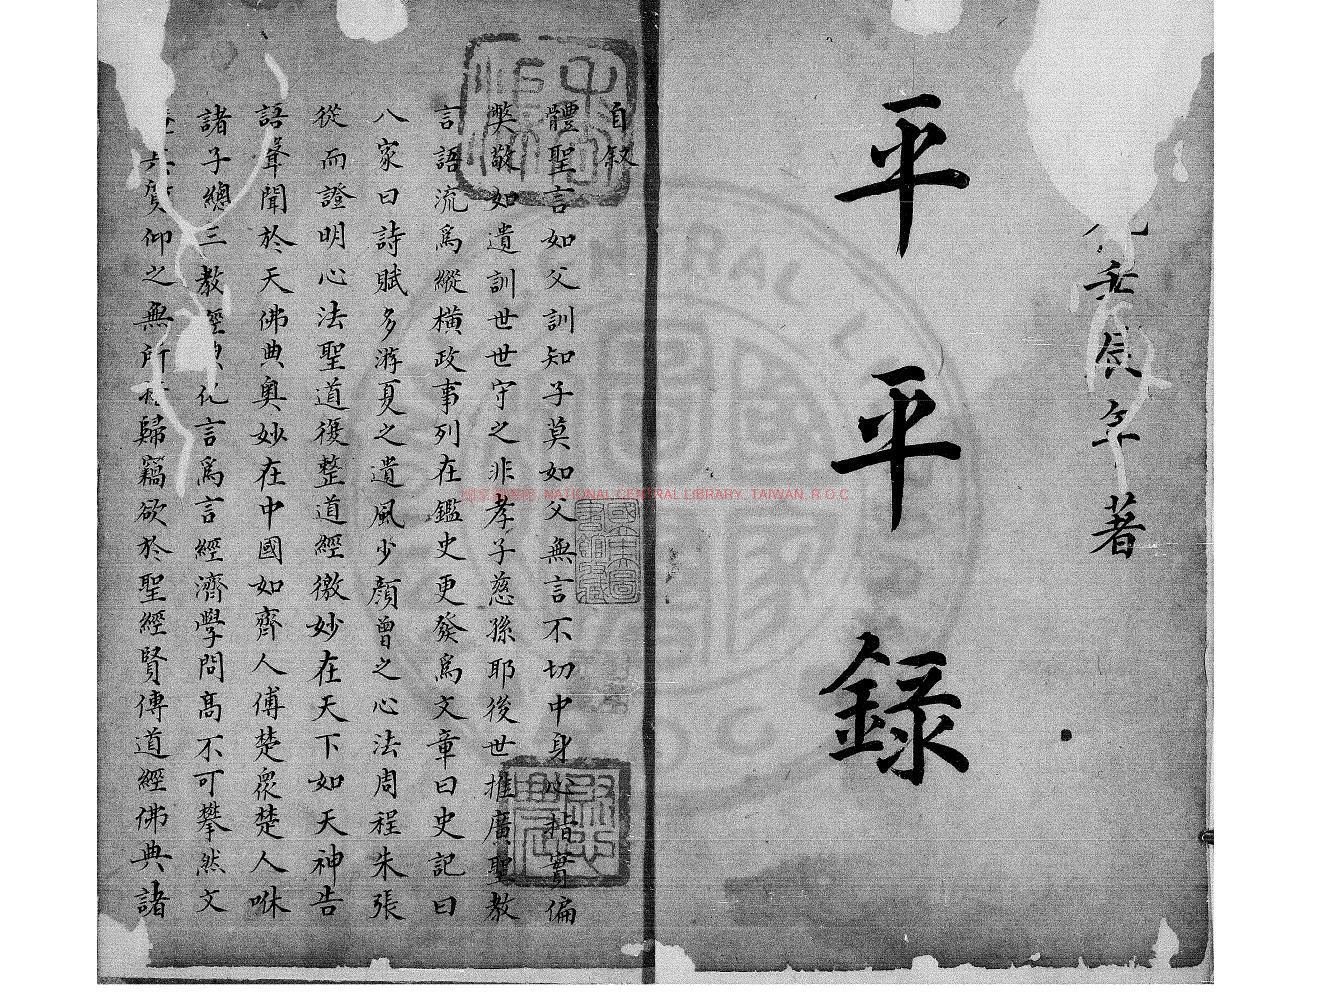 辰年著
平平錄
自敘
體聖言如父訓知子莫如父無言不切中身心指實偏
獘敬如遺訓世世守之非孝子慈孫耶後世推廣聖教
言語流爲縱橫政事列在鑑史更發爲文章曰史記曰
八家曰詩賦多游夏之遺風少顏曾之心法周程朱張
從而證明心法聖道復整道經微妙在天下如天神告
語聲聞於天佛典奧妙在中國如齊人傅楚衆楚人咻
諸子總三教經典化言爲言經濟學問髙不可攀然文
質仰之無所歸竊欲於聖經賢傳道經佛典諸
國家圖書館 NATIONAL CENTRAL LIBRARY, TAIWAN, R.O.C
國家圖書館藏